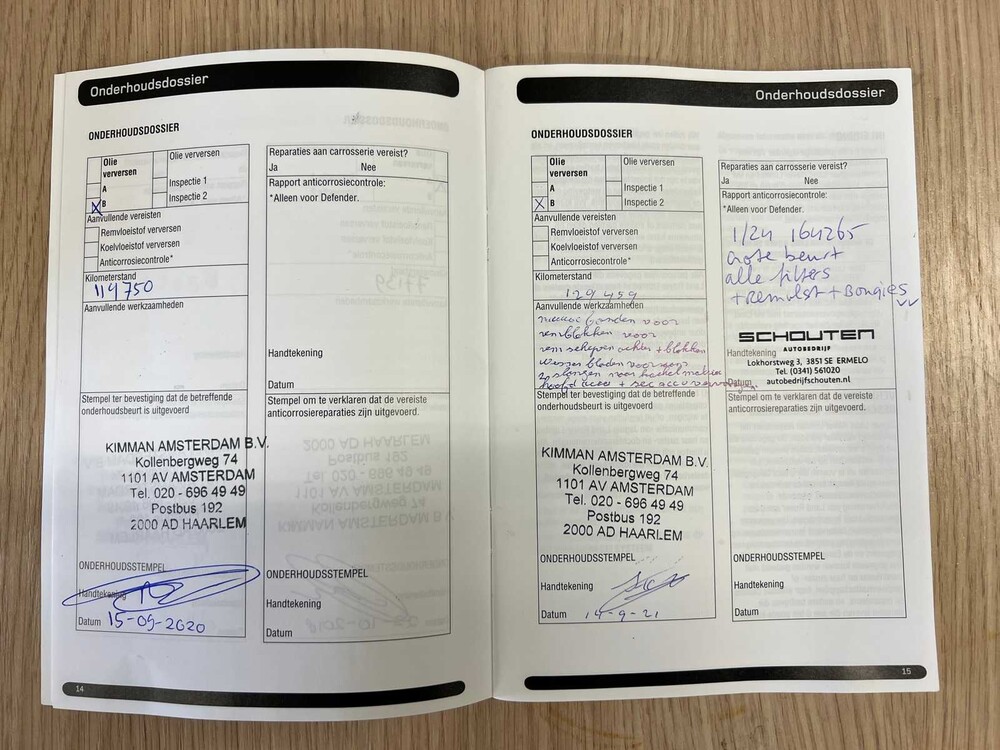 Onderhoudsdossier
ONDERHOUDSDOSSIER
Olie verversen
Olie verversen
A
Inspectie 1
X B
Inspectie 2
Aanvullende vereisten
Remvloeistof verversen
Koelvloeistof verversen
Anticorrosiecontrole*
Kilometerstand
119750
Aanvullende werkzaamheden
Stempel ter bevestiging dat de betreffende
onderhoudsbeurt is uitgevoerd
KIMMAN AMSTERDAM B.V.
Kollenbergweg 74
1101 AV AMSTERDAM
Tel. 020 - 696 49 49
Postbus 192
2000 AD HAARLEM
ONDERHOUDSSTEMPEL
Handtekening
Datum 15-09-2020
Reparaties aan carrosserie vereist?
Ja Nee
Rapport anticorrosiecontrole:
*Alleen voor Defender.
Handtekening
Datum
Stempel om te verklaren dat de vereiste
anticorrosiereparaties zijn uitgevoerd.
ONDERHOUDSSTEMPEL
Handtekening
Datum
14
Onderhoudsdossier
ONDERHOUDSDOSSIER
Olie verversen
Olie verversen
A
Inspectie 1
X B
Inspectie 2
Aanvullende vereisten
Remvloeistof verversen
Koelvloeistof verversen
Anticorrosiecontrole*
Kilometerstand
129459
Aanvullende werkzaamheden
nieuwe banden voor
remblokken voor
rem schijven achter + blokken
wisserbladen voorzijde
hoofd accu + sec accu
Stempel ter bevestiging dat de betreffende
onderhoudsbeurt is uitgevoerd
KIMMAN AMSTERDAM B.V.
Kollenbergweg 74
1101 AV AMSTERDAM
Tel. 020 - 696 49 49
Postbus 192
2000 AD HAARLEM
ONDERHOUDSSTEMPEL
Handtekening
Datum 14-9-21
Reparaties aan carrosserie vereist?
Ja Nee
Rapport anticorrosiecontrole:
*Alleen voor Defender.
1/24 164265
Grote beurt
alle filters
+ Remvlst + Bougies
SCHOUTEN
AUTOBEDRIJF
Handtekening
Lokhorstweg 3, 3851 SE ERMELO
Tel. (0341) 561020
Datum
autobedrijfschouten.nl
Stempel om te verklaren dat de vereiste
anticorrosiereparaties zijn uitgevoerd.
ONDERHOUDSSTEMPEL
Handtekening
Datum
15